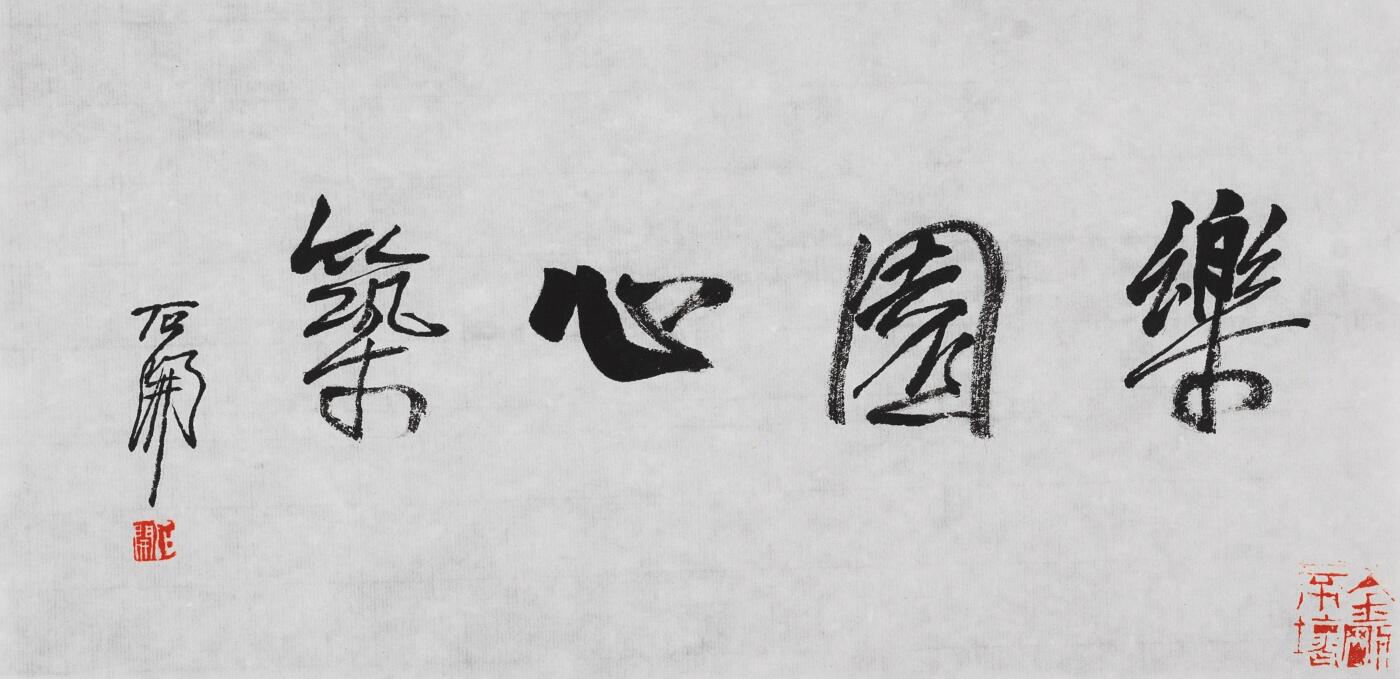 樂園心築
石開
石開
金剛不壞